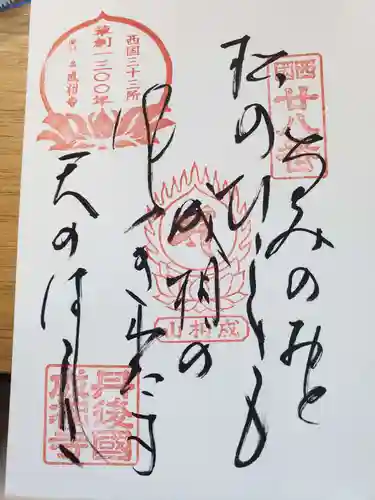 西国
廿八番
なみのおと
松のひゞきも
成相の
風ふきわたす
天のはし立
西国三十三所
草創一三〇〇年
成相寺
成相山
丹後國
成相寺